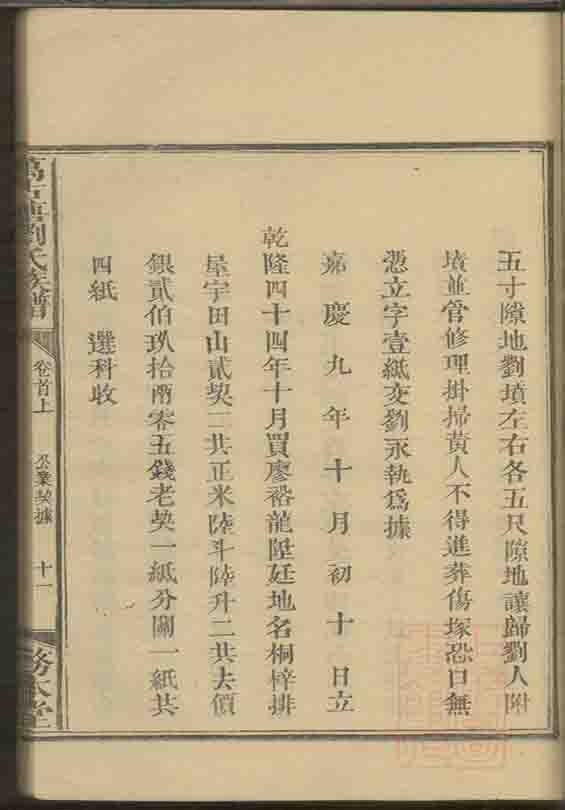 五寸隙地劉墳左右各五尺隙地讓歸劉人附
墳並管修理掛掃黃人不得進葬傷塚恐口無
憑立字壹紙交劉永執爲據
嘉慶九年十月初十日立
乾隆四十四年十月買廖裕龍陞廷地名桐梓排
屋宇田山貳契二共正米陸斗陸升二共去價
銀貳伯玖拾兩零五錢老契一紙分關一紙共
四紙 選科收
劉氏族譜
卷首上
公業契據
十一